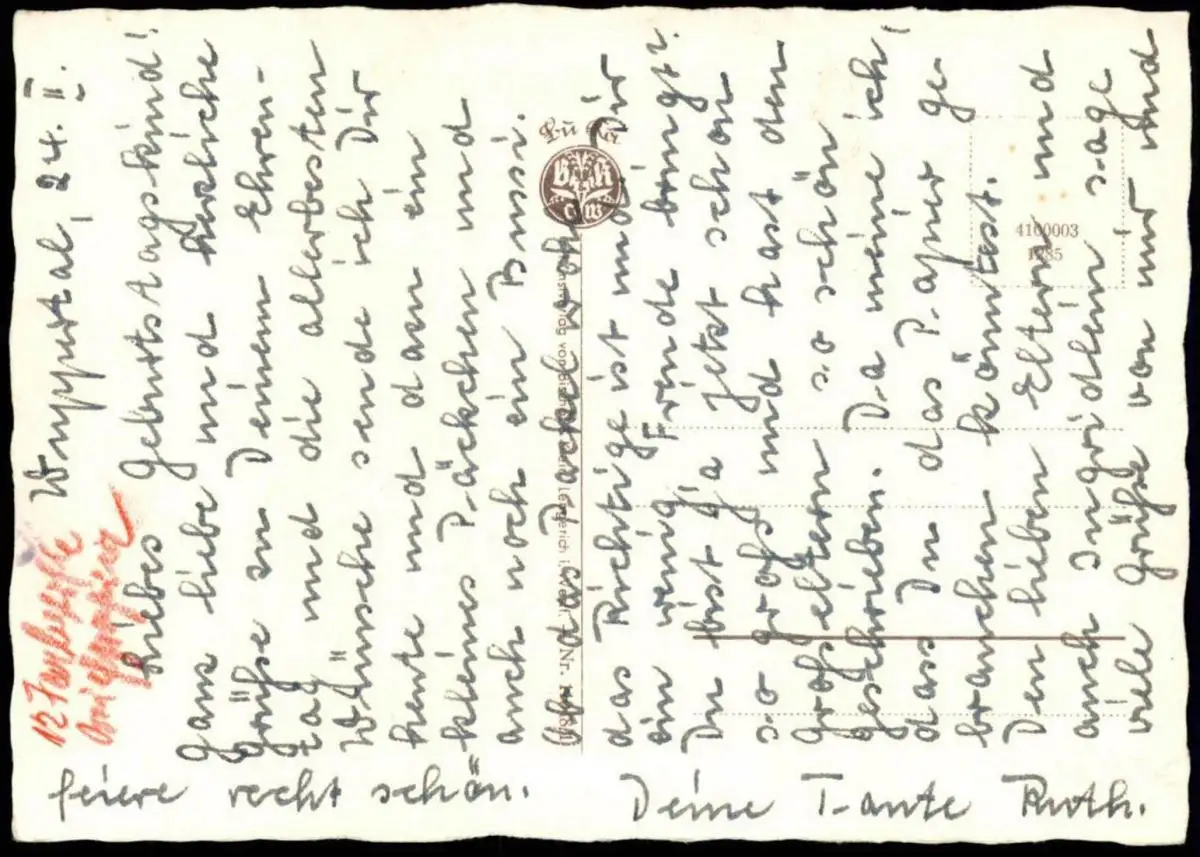 Wuppertal, 24. II.
Liebes Geburtstagskind!
Ganz liebe und herzliche
Grüße zu Deinem Ehren-
tag und die allerbesten
Wünsche sende ich Dir
heute und dazu ein
kleines Päckchen und
auch noch ein Bussi.
Ob das Päckchen
das Richtige ist und Dir
ein wenig Freude bringt?
Du bist ja jetzt schon
so groß und hast den
Großeltern so schön
geschrieben. Da meine ich,
dass Du das Papier ge
brauchen könntest.
Den lieben Eltern und
auch Ingridlein sage
viele Grüße von mir und
feiere recht schön.
Deine Tante Ruth.
12 Farbstifte
Briefpapier
Lu Ka
b k
c w
4100003
1285